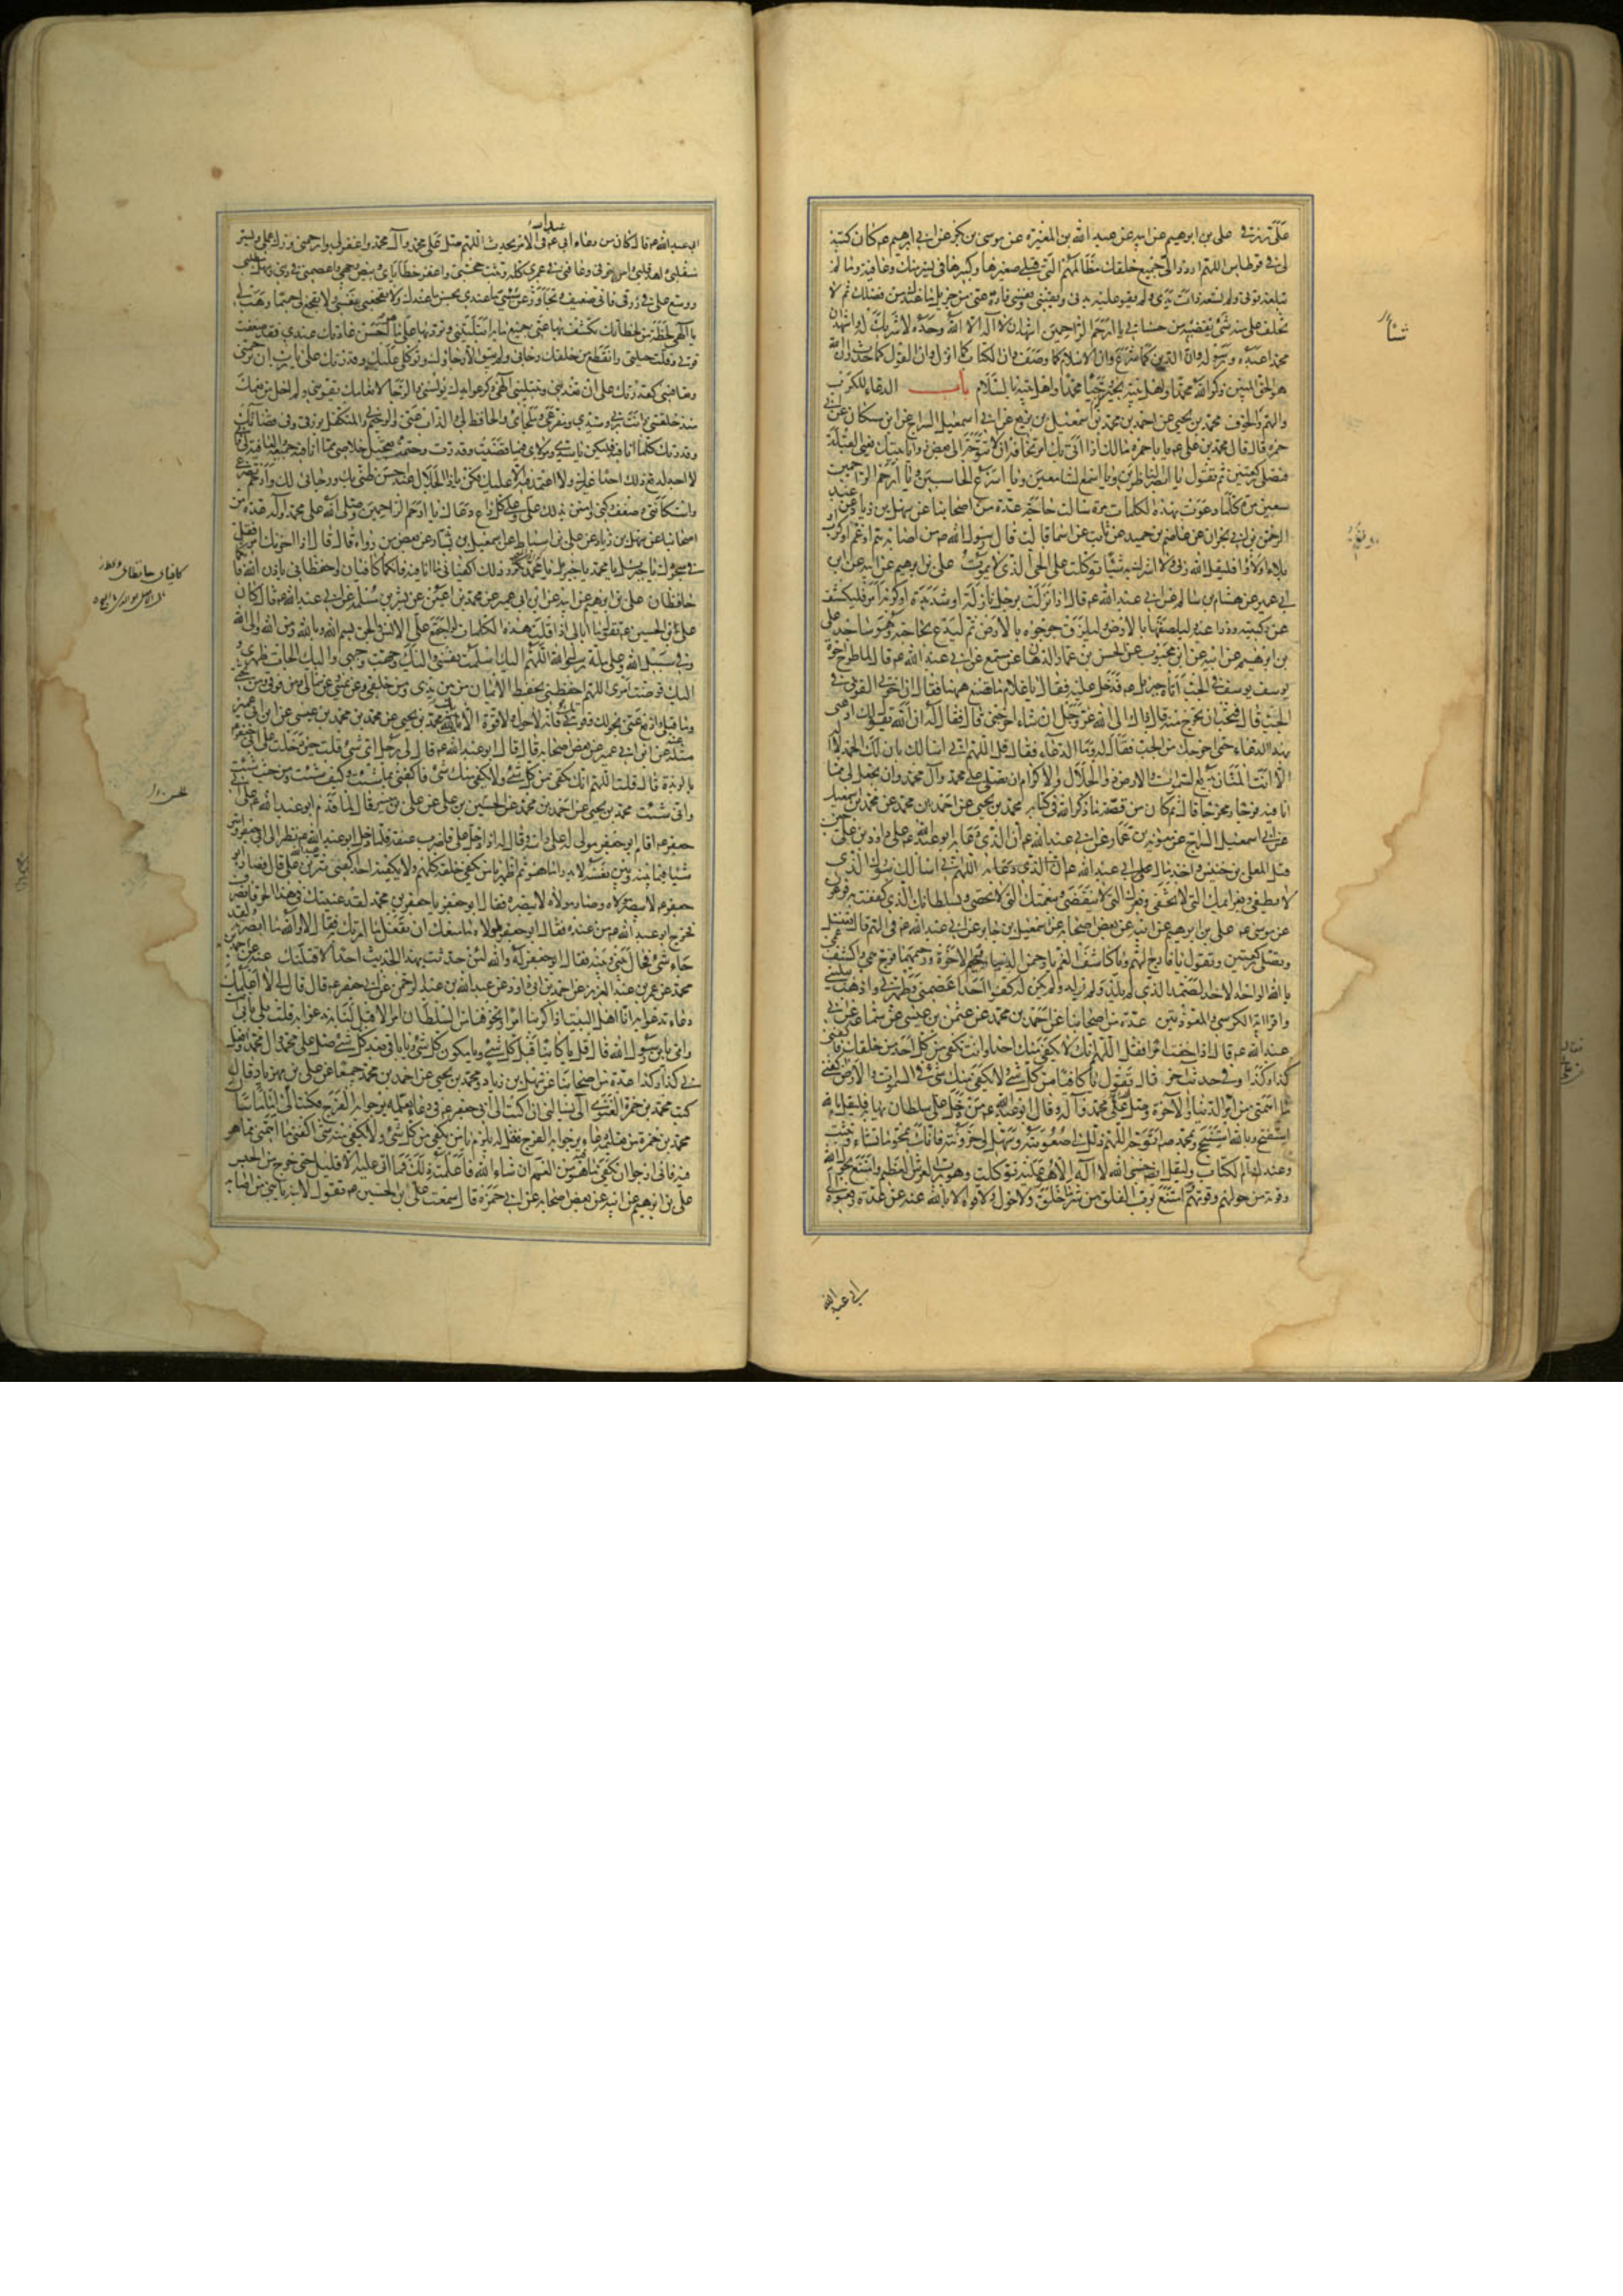 علي بن ابرهيم عن ابيه عن عبد الله بن المغيرة عن موسى بن بكر عن ابي ابرهيم ع كان كتبه
لي في قرطاس اللهم اردد الى جميع خلقك مظالمهم التي قبلي صغيرها وكبيرها في يسر منك وعافية وما لم
تبلغه قوتي ولم تسعه ذات يدي ولم يقو عليه بدني ويقيني ونفسي فاده عني من جزيل ما عندك من فضلك ثم لا
تخلف علي منه شيئا تقضيه من حسناتي يا ارحم الراحمين اشهد ان لا اله الا الله وحده لا شريك له واشهد ان
محمدا عبده ورسوله وان الدين كما شرع وان الاسلام كما وصف وان الكتاب كما انزل وان القول كما حدث وان الله
هو الحق المبين ذكر الله محمدا واهل بيته بخير وحيا محمدا واهل بيته بالسلام باب الدعاء للكرب
والهم والخوف محمد بن يحيى عن احمد بن محمد بن اسمعيل بن بزيع عن ابي اسمعيل السراج عن ابن مسكان عن ابي
حمزة قال قال محمد بن علي ع يا با حمزة مالك اذا اتى بك امر تخافه ان لا تتوجه الى بعض زوايا بيتك يعني القبلة
فتصلي ركعتين ثم تقول يا ابصر الناظرين ويا اسمع السامعين ويا اسرع الحاسبين ويا ارحم الراحمين
سبعين مرة كلما دعوت بهذه الكلمات مرة سالت حاجة عدة من اصحابنا عن سهل بن زياد عن عبد
الرحمن بن ابي نجران عن عاصم بن حميد عن ثابت عن اسما قالت قال رسول الله ص من اصابه هم او غم او كرب او
بلاء او لاوا فليقل الله ربي ولا اشرك به شيئا توكلت على الحي الذي لا يموت علي بن ابرهيم عن ابيه عن ابن
ابي عمير عن هشام بن سالم عن ابي عبد الله ع قال اذا نزلت برجل نازلة او شديدة او كربه امر فليكشف
عن ركبتيه وذراعيه وليلصقهما بالارض وليلزق جؤجؤه بالارض ثم ليدع بحاجته وهو ساجد علي
بن ابرهيم عن ابيه عن ابن محبوب عن الحسن بن عمار الدهان عن مسمع عن ابي عبد الله ع قال لما طرح اخوة
يوسف يوسف في الجب اتاه جبرئيل ع فدخل عليه فقال يا غلام ما تصنع ههنا فقال ان اخوتي القوني في
الجب قال فتحب ان تخرج منه قال ذاك الى الله عز وجل ان شاء اخرجني قال فقال له ان الله يقول لك ادعني
بهذا الدعاء حتى اخرجك من الجب فقال له وما الدعاء فقال قل اللهم اني اسالك بان لك الحمد لا اله
الا انت المنان بديع السموات والارض ذو الجلال والاكرام ان تصلي على محمد وآل محمد وان تجعل لي مما
انا فيه فرجا ومخرجا قال ثم كان من قصته ما ذكر الله في كتابه محمد بن يحيى عن احمد بن محمد عن محمد بن اسمعيل
عن ابي اسمعيل السراج عن معوية بن عمار عن ابي عبد الله ع ان الذي دعا به ابو عبد الله ع على داود بن علي حين
قتل المعلى بن خنيس واخذ مال علي ابي عبد الله ع ان الذي دعا به اللهم اني اسالك بنورك الذي
لا يطفى وبعزائمك التي لا تخفى وبعزك الذي لا ينقضي وبنعمتك التي لا تحصى وبسلطانك الذي كففت به فرعون
عن موسى ع علي بن ابرهيم عن ابيه عن بعض اصحابه عن اسمعيل بن جابر عن ابي عبد الله ع في الهم قال تغتسل
وتصلي ركعتين وتقول يا فارج الهم ويا كاشف الغم يا رحمن الدنيا والاخرة ورحيمهما فرج همي واكشف غمي
يا الله الواحد الاحد الصمد الذي لم يلد ولم يولد ولم يكن له كفوا احد اعصمني وطهرني واذهب ببليتي
واقرا اية الكرسي والمعوذتين عدة من اصحابنا عن احمد بن محمد عن عثمن بن عيسى عن سماعة عن ابي
عبد الله ع قال اذا خفت امرا فقل اللهم انك لا يكفي منك احد وانت تكفي من كل احد من خلقك فاكفني
كذا وكذا وفي حديث اخر قال تقول يا كافيا من كل شيء ولا يكفي منك شيء في السموات والارض اكفني
ما اهمني من امر الدنيا والاخرة وصل على محمد وآله وقال ابو عبد الله ع من دخل على سلطان يهابه فليقل بالله
استفتح وبالله استنجح وبمحمد ص اتوجه اللهم ذلل لي صعوبته وسهل لي حزونته فانك تمحو ما تشاء وتثبت
وعندك ام الكتاب وليقل ايضا حسبي الله لا اله الا هو عليه توكلت وهو رب العرش العظيم وامتنع بحول الله
وقوته من حولهم وقوتهم وامتنع برب الفلق من شر ما خلق ولا حول ولا قوة الا بالله عنه عن عدة رفعوه الى
ابي عبد الله
ابي عبد الله ع قال كان من دعاء ابي ع في الامر يحدث اللهم صل على محمد وآل محمد واغفر لي وارحمني وزك عملي ويسر
منقلبي واهد قلبي وامن خوفي وعافني في عمري كله وثبت حجتي واغفر خطاياي وبيض وجهي واعصمني في ديني وسهل مطلبي
ووسع علي في رزقي فاني ضعيف وتجاوز عن سيئ ما عندي بحسن ما عندك ولا تفجعني بنفسي ولا تفجع لي حميما وهب لي
يا الهي لحظة من لحظاتك تكشف بها عني جميع ما به ابتليتني وترد بها علي ما هو احسن عاداتك عندي فقد ضعفت
قوتي وقلت حيلتي وانقطع من خلقك رجائي ولم يبق الا رجاؤك وتوكلي عليك وقدرتك علي يا رب ان ترحمني
وتعافيني كقدرتك علي ان تعذبني وتبتليني الهي ذكر عوائدك يونسني والرجاء لانعامك يقويني ولم اخل من نعمك
منذ خلقتني فانت ربي وسيدي ومفزعي وملجاي والحافظ لي والذاب عني والرحيم بي والمتكفل برزقي وفي قضائك
وقدرتك كلما انا فيه فليكن يا سيدي ومولاي فيما قضيت وقدرت وحتمت تعجيل خلاصي مما انا فيه جميعه والعافية لي فاني
لا اجد لدفع ذلك احدا غيرك ولا اعتمد فيه الا عليك فكن يا ذا الجلال عند حسن ظني بك ورجائي لك وارحم تضرعي
واستكانتي وضعف ركني وامنن بذلك علي وعلى كل داع دعاك يا ارحم الراحمين وصلى الله على محمد وآله عدة من
اصحابنا عن سهل بن زياد عن علي بن اسباط عن اسمعيل بن يسار عن بعض من رواه قال قال اذا احزنك امر فقل
في سجودك يا جبرئيل يا محمد يا جبرئيل يا محمد تكرر ذلك اكفياني ما انا فيه فانكما كافيان واحفظاني باذن الله فانكما
حافظان علي بن ابرهيم عن ابيه عن ابن ابي عمير عن محمد بن اعين عن بشر بن مسلمة عن ابي عبد الله ع قال كان
علي بن الحسين ع يقول ما ابالي اذا قلت هذه الكلمات لو اجتمع علي الانس والجن بسم الله وبالله ومن الله والى الله
وفي سبيل الله وعلى ملة رسول الله اللهم اليك اسلمت نفسي واليك وجهت وجهي واليك الجات ظهري و
اليك فوضت امري اللهم احفظني بحفظ الايمان من بين يدي ومن خلفي وعن يميني وعن شمالي ومن فوقي ومن تحتي
وما قبلي وادفع عني بحولك وقوتك فانه لا حول ولا قوة الا بالله محمد بن يحيى عن محمد بن محمد بن عيسى عن ابن ابي عمير
مثله عن ابن ابي عمير عن بعض اصحابه قال قال ابو عبد الله ع قال لي رجل اي شيء قلت حين دخلت على ابي جعفر
بالربذة قال قلت اللهم انك تكفي من كل شيء ولا يكفي منك شيء فاكفني بما شئت وكيف شئت ومن حيث شئت
واني شئت محمد بن يحيى عن احمد بن محمد عن الحسين بن علي عن علي بن ميسر قال لما قدم ابو عبد الله ع على ابي
جعفر اقام ابو جعفر مولى له على راسه وقال له اذا دخل علي فاضرب عنقه فلما دخل ابو عبد الله ع نظر الى ابي جعفر واسر
شيئا فيما بينه وبين نفسه لا يدرى ما هو ثم اظهر يا من يكفي خلقه كلهم ولا يكفيه احد اكفني شر عبد الله بن علي قال فصار ابو
جعفر لا يبصر مولاه وصار مولاه لا يبصره فقال ابو جعفر يا جعفر بن محمد لقد عنيتك في هذا الحر فانصرف
فخرج ابو عبد الله ع من عنده فقال ابو جعفر لمولاه ما منعك ان تفعل ما امرتك به فقال لا والله ما ابصرته ولقد
جاء شيء فحال بيني وبينه فقال ابو جعفر له والله لئن حدثت بهذا الحديث احدا لاقتلنك عنه عن احمد بن
محمد عن عمر بن عبد العزيز عن احمد بن ابي داود عن عبد الله بن عبد الرحمن عن ابي جعفر ع قال قال لي الا اعلمك
دعاء تدعو به انا اهل البيت اذا كربنا امر وتخوفنا من السلطان امرا لا قبل لنا به ندعو به قلت بلى بابي انت
وامي يا بن رسول الله قال قل يا كائنا قبل كل شيء ويا مكون كل شيء ويا باقي بعد كل شيء صل على محمد وآل محمد وافعل
بي كذا وكذا عدة من اصحابنا عن سهل بن زياد ومحمد بن يحيى عن احمد بن محمد جميعا عن علي بن مهزيار قال
كتب محمد بن حمزة الغنوي الي يسالني ان اكتب الى ابي جعفر ع في دعاء يعلمه يرجو به الفرج فكتب الي اما ما سال
محمد بن حمزة من تعليمه دعاء يرجو به الفرج فقل له يلزم يا من يكفي من كل شيء ولا يكفي منه شيء اكفني ما اهمني مما هو
فيه فاني ارجو ان يكفي ما هو فيه من الغم ان شاء الله فاعلمته ذلك فما اتى عليه الا قليل حتى خرج من الحبس
علي بن ابرهيم عن ابيه عن بعض اصحابه عن ابي حمزة قال سمعت علي بن الحسين ع يقول لابنه يا بني من اصابه